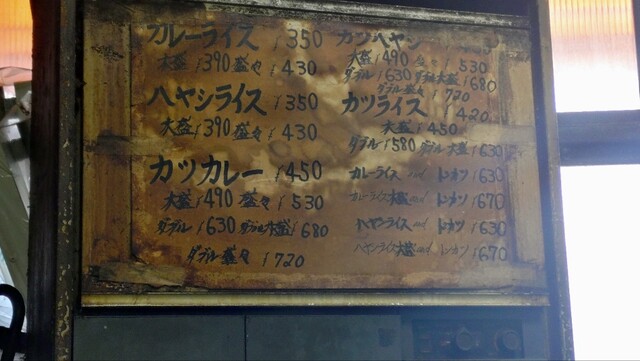 カレーライス ¥350
大盛 ¥390 盛々 ¥430
ハヤシライス ¥350
大盛 ¥390 盛々 ¥430
カツカレー ¥450
大盛 ¥490 盛々 ¥530
ダブル ¥630 ダブル大盛 ¥680
ダブル盛々 ¥720
カツハヤシ
大盛 ¥490 盛々 ¥530
ダブル ¥630 ダブル大盛 ¥680
ダブル盛々 ¥720
カツライス ¥420
大盛 ¥450
ダブル ¥580 ダブル大盛 ¥630
カレーライス and トンカツ ¥630
カレーライス大盛 and トンカツ ¥670
ハヤシライス and トンカツ ¥630
ハヤシライス大盛 and トンカツ ¥670